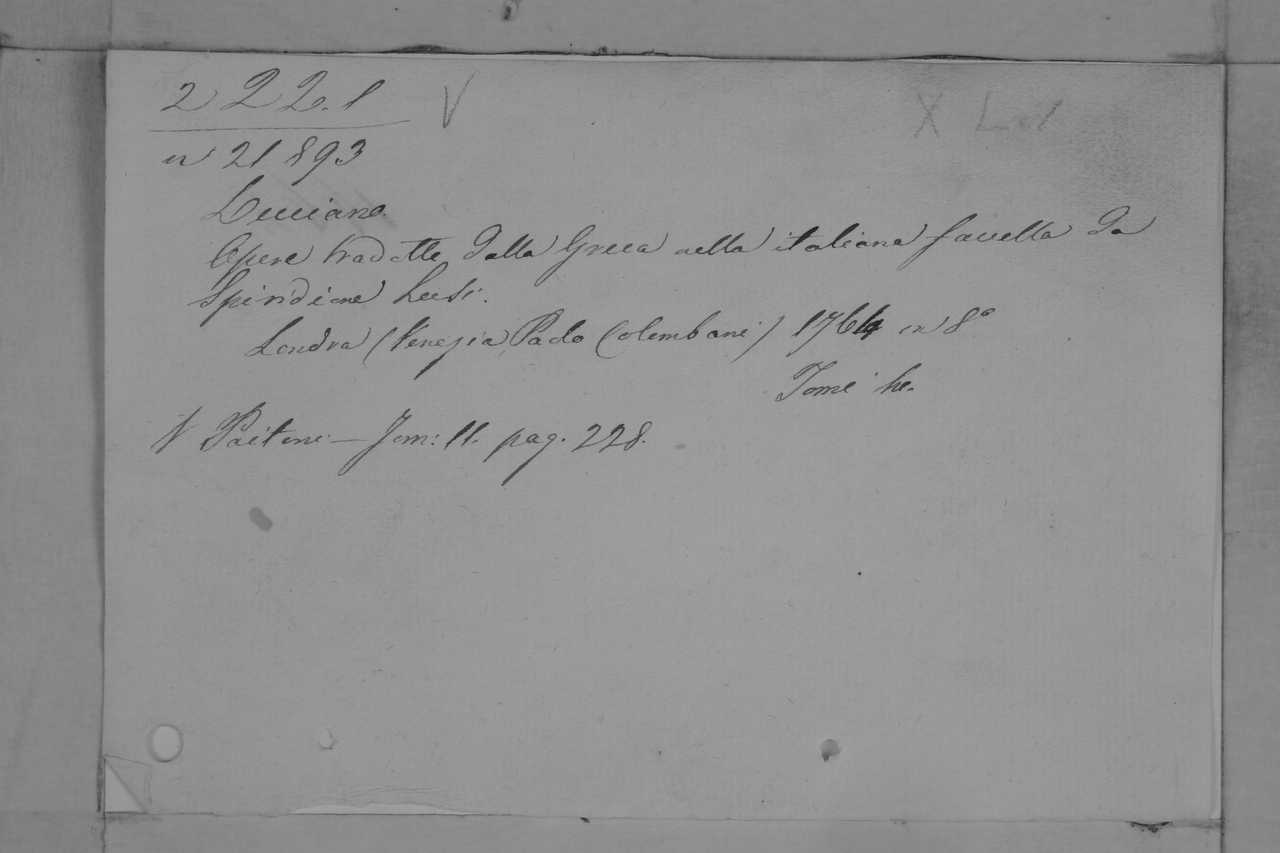 2 22.1 V X L.1
n 21893
Luciano.
Opere tradotte dalla Greca nella italiana favella da
Spiridione Lusi.
Londra (Venezia Paolo Colombani) 1764 in 8°
Tomi
V Paitoni — Tom: II. pag. 228.